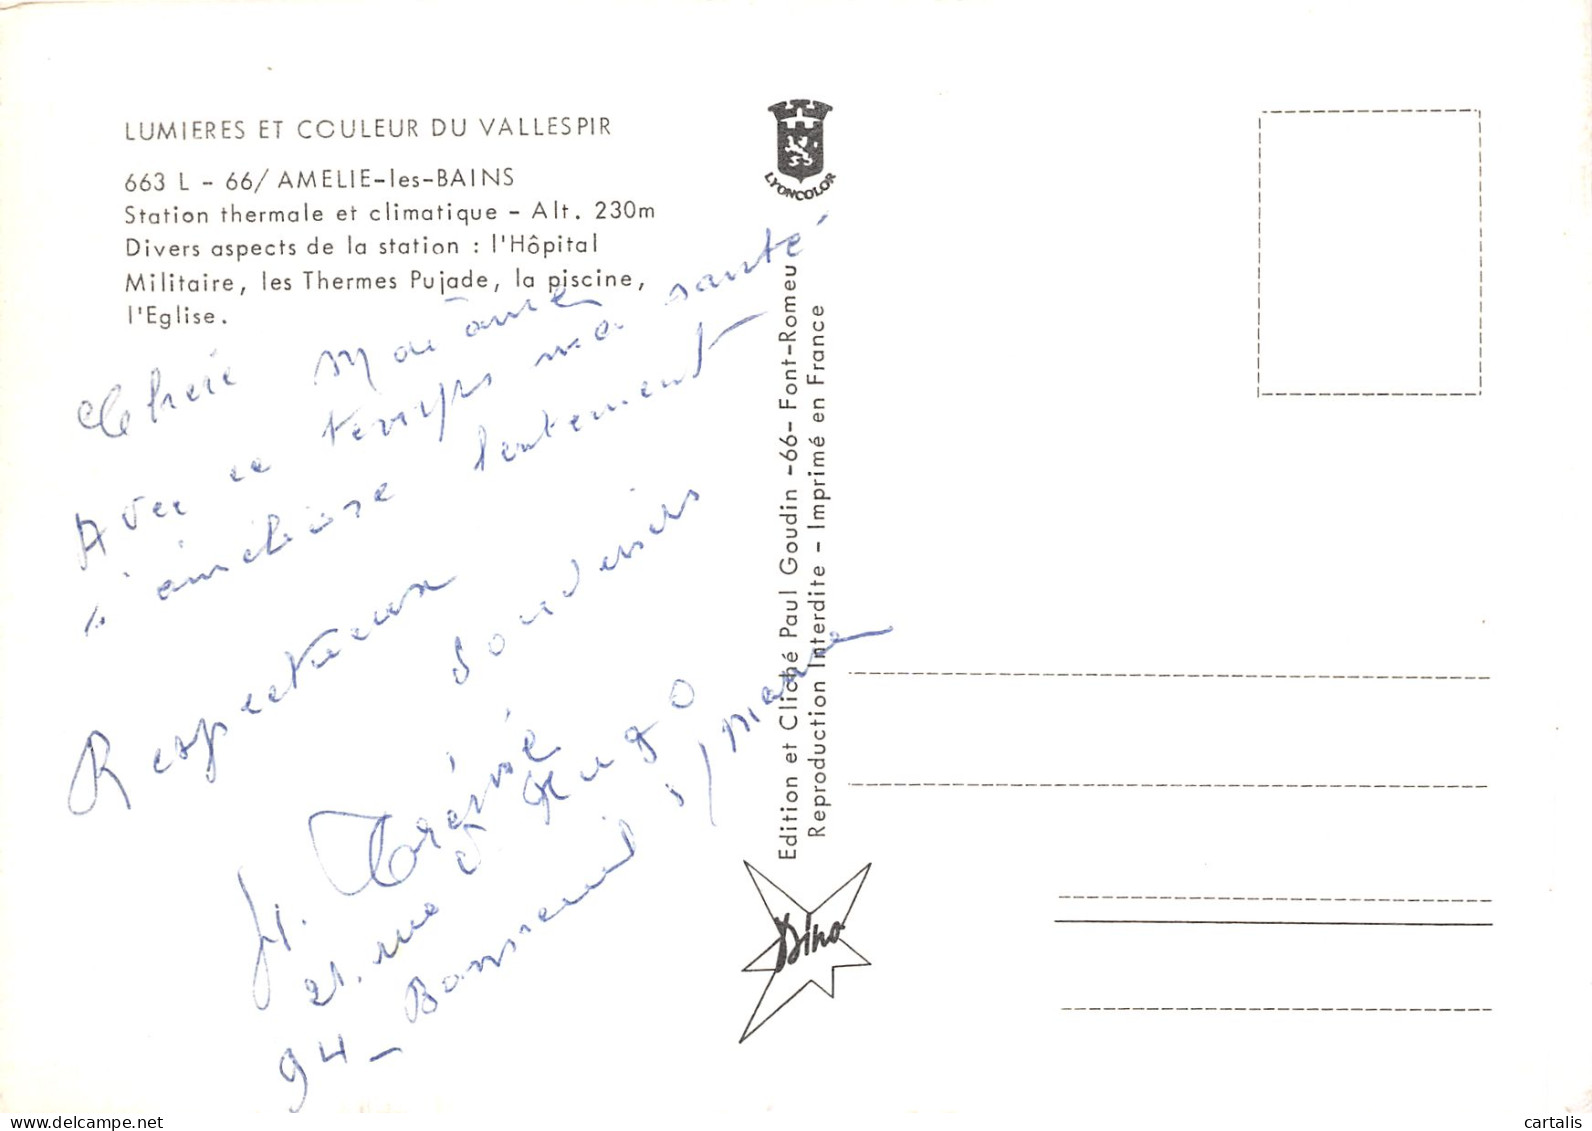 LUMIERES ET COULEUR DU VALLESPIR
663 L - 66/ AMELIE-les-BAINS
Station thermale et climatique - Alt. 230m
Divers aspects de la station : l'Hôpital
Militaire, les Thermes Pujade, la piscine,
l'Eglise.
LYONCOLOR
Edition et Cliché Paul Goudin -66- Font-Romeu
Reproduction Interdite - Imprimé en France
Dino
Avec ce temps ma santé
s'améliore lentement
Respectueux
Souvenirs
21. rue V. Hugo
94 - Bonneuil s/ Marne
delcampe.net
cartalis